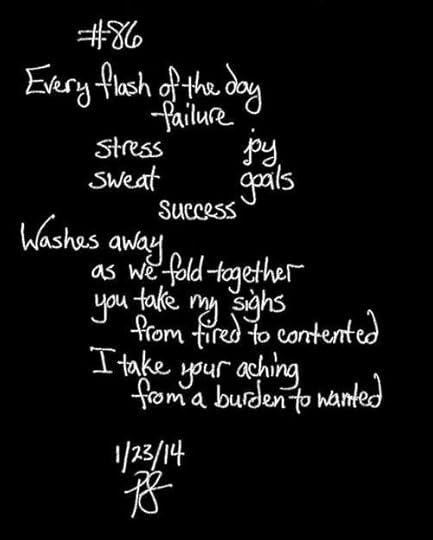 #86
Every flash of the day
failure
stress joy
sweat goals
success
Washes away
as we fold together
you take my sighs
from tired to contented
I take your aching
from a burden to wanted
1/23/14